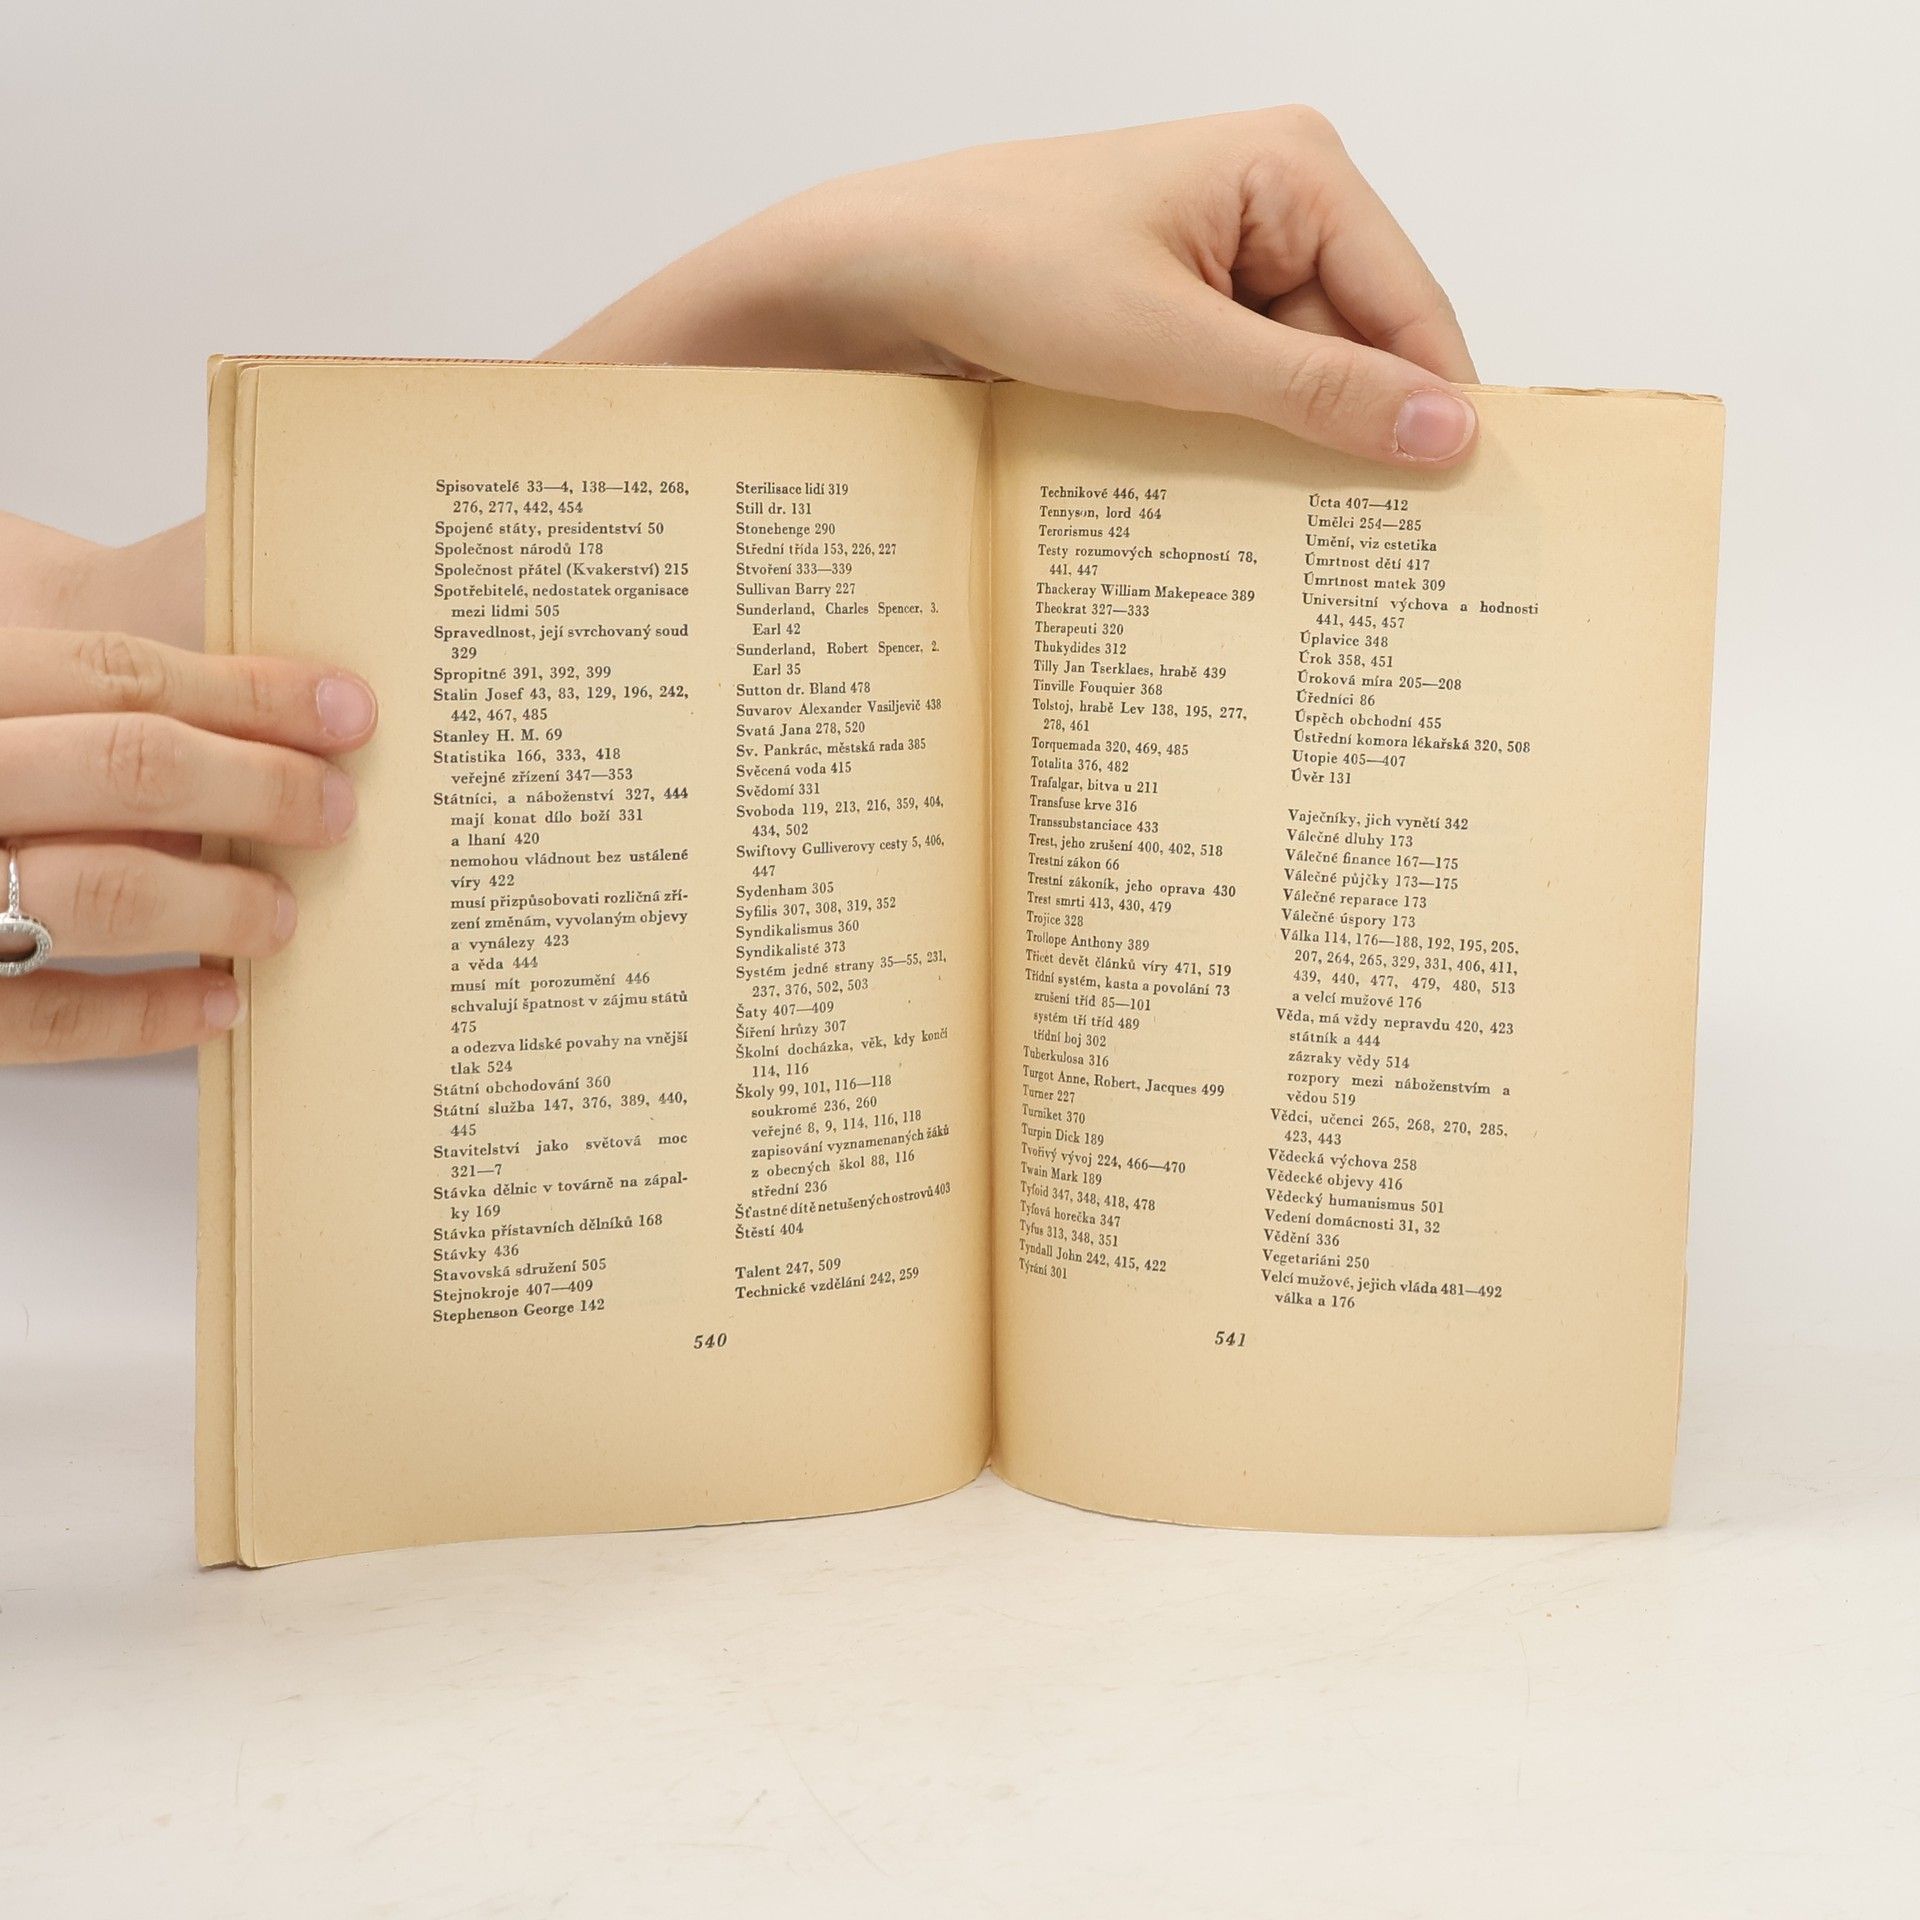 Spisovatelé 33—4, 138—142, 268,
276, 277, 442, 454
Spojené státy, presidentství 50
Společnost národů 178
Společnost přátel (Kvakerství) 215
Spotřebitelé, nedostatek organisace
mezi lidmi 505
Spravedlnost, její svrchovaný soud
329
Spropitné 391, 392, 399
Stalin Josef 43, 83, 129, 196, 242,
442, 467, 485
Stanley H. M. 69
Statistika 166, 333, 418
veřejné zřízení 347—353
Státníci, a náboženství 327, 444
mají konat dílo boží 331
a lhaní 420
nemohou vládnout bez ustálené
víry 422
musí přizpůsobovati rozličná zří-
zení změnám, vyvolaným objevy
a vynálezy 423
a věda 444
musí mít porozumění 446
schvalují špatnost v zájmu států
475
a odezva lidské povahy na vnější
tlak 524
Státní obchodování 360
Státní služba 147, 376, 389, 440,
445
Stavitelství jako světová moc
321—7
Stávka dělnic v továrně na zápal-
ky 169
Stávka přístavních dělníků 168
Stávky 436
Stavovská sdružení 505
Stejnokroje 407—409
Stephenson George 142
Sterilisace lidí 319
Still dr. 131
Stonehenge 290
Střední třída 153, 226, 227
Stvoření 333—339
Sullivan Barry 227
Sunderland, Charles Spencer, 3.
Earl 42
Sunderland, Robert Spencer, 2.
Earl 35
Sutton dr. Bland 478
Suvarov Alexander Vasiljevič 438
Svatá Jana 278, 520
Sv. Pankrác, městská rada 385
Svěcená voda 415
Svědomí 331
Svoboda 119, 213, 216, 359, 404,
434, 502
Swiftovy Gulliverovy cesty 5, 406,
447
Sydenham 305
Syfilis 307, 308, 319, 352
Syndikalismus 360
Syndikalisté 373
Systém jedné strany 35—55, 231,
237, 376, 502, 503
Šaty 407—409
Šíření hrůzy 307
Školní docházka, věk, kdy končí
114, 116
Školy 99, 101, 116—118
soukromé 236, 260
veřejné 8, 9, 114, 116, 118
zapisování vyznamenaných žáků
z obecných škol 88, 116
střední 236
Šťastné dítě netušených ostrovů 403
Štěstí 404
Talent 247, 509
Technické vzdělání 242, 259
540
Technikové 446, 447
Tennyson, lord 464
Terorismus 424
Testy rozumových schopností 78,
441, 447
Thackeray William Makepeace 389
Theokrat 327—333
Therapeuti 320
Thukydides 312
Tilly Jan Tserklaes, hrabě 439
Tinville Fouquier 368
Tolstoj, hrabě Lev 138, 195, 277,
278, 461
Torquemada 320, 469, 485
Totalita 376, 482
Trafalgar, bitva u 211
Transfuse krve 316
Transsubstanciace 433
Trest, jeho zrušení 400, 402, 518
Trestní zákon 66
Trestní zákoník, jeho oprava 430
Trest smrti 413, 430, 479
Trojice 328
Trollope Anthony 389
Třicet devět článků víry 471, 519
Třídní systém, kasta a povolání 73
zrušení tříd 85—101
systém tří tříd 489
třídní boj 302
Tuberkulosa 316
Turgot Anne, Robert, Jacques 499
Turner 227
Turniket 370
Turpin Dick 189
Tvořivý vývoj 224, 466—470
Twain Mark 189
Tyfoid 347, 348, 418, 478
Tyfová horečka 347
Tyfus 313, 348, 351
Tyndall John 242, 415, 422
Týrání 301
Úcta 407—412
Umělci 254—285
Umění, viz estetika
Úmrtnost dětí 417
Úmrtnost matek 309
Universitní výchova a hodnosti
441, 445, 457
Úplavice 348
Úrok 358, 451
Úroková míra 205—208
Úředníci 86
Úspěch obchodní 455
Ústřední komora lékařská 320, 508
Utopie 405—407
Úvěr 131
Vaječníky, jich vynětí 342
Válečné dluhy 173
Válečné finance 167—175
Válečné půjčky 173—175
Válečné reparace 173
Válečné úspory 173
Válka 114, 176—188, 192, 195, 205,
207, 264, 265, 329, 331, 406, 411,
439, 440, 477, 479, 480, 513
a velcí mužové 176
Věda, má vždy nepravdu 420, 423
státník a 444
zázraky vědy 514
rozpory mezi náboženstvím a
vědou 519
Vědci, učenci 265, 268, 270, 285,
423, 443
Vědecká výchova 258
Vědecké objevy 416
Vědecký humanismus 501
Vedení domácnosti 31, 32
Vědění 336
Vegetariáni 250
Velcí mužové, jejich vláda 481—492
válka a 176
541